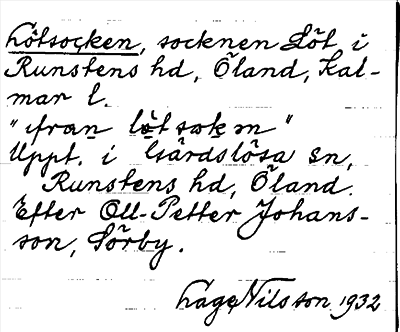 Lötsocken, socknen Löt i
Runstens hd, Öland, Kal-
mar l.
"ifrạn lö̀tsok̥m"
Uppt. i Gärdslösa sn,
Runstens hd, Öland.
Efter Oll-Petter Johans-
son, Sörby.
Lage Nilsson 1932